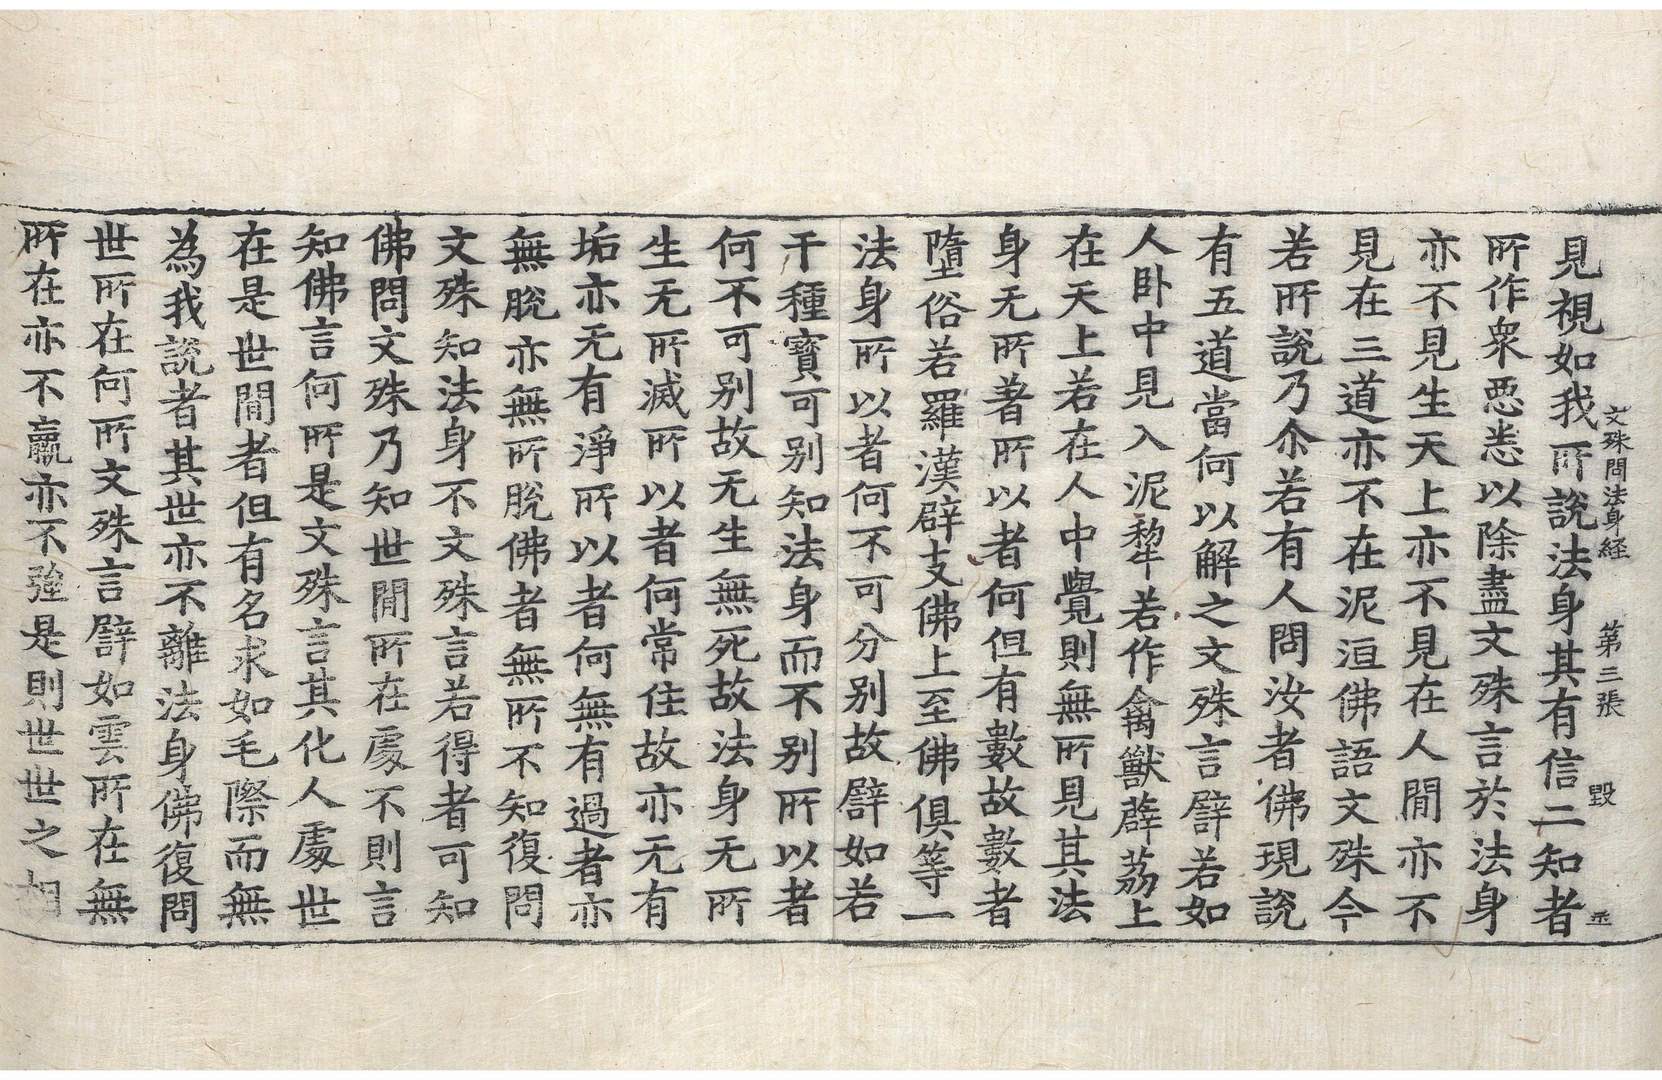 文殊問法身經 第三張 毀
見視如我所說法身其有信二知者
所作衆惡恙以除盡文殊言於法身
亦不見生天上亦不見在人間亦不
見在三道亦不在泥洹佛語文殊今
若所說乃尒若有人問汝者佛現說
有五道當何以解之文殊言譬若如
人卧中見入泥犁若作禽獸薜荔上
在天上若在人中覺則無所見其法
身无所著所以者何但有數故數者
墮俗若羅漢辟支佛上至佛俱等一
法身所以者何不可分别故譬如若
干種寶可别知法身而不别所以者
何不可别故无生無死故法身无所
生无所滅所以者何常住故亦无有
垢亦无有淨所以者何無有過者亦
無脫亦無所脫佛者無所不知復問
文殊知法身不文殊言若得者可知
佛問文殊乃知世間所在處不則言
知佛言何所是文殊言其化人處世
在是世間者但有名求如毛際而無
為我說者其世亦不離法身佛復問
世所在何所文殊言譬如雲所在無
所在亦不羸亦不强是則世世之相